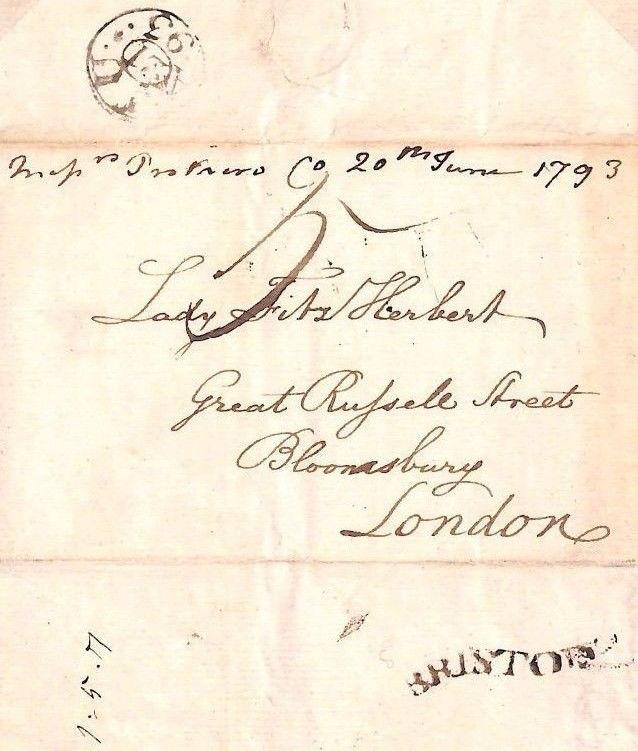 93
Messrs Protheroe Co 20th June 1793
5
Lady Fitz Herbert
Great Russell Street
Bloomsbury
London
BRISTOL